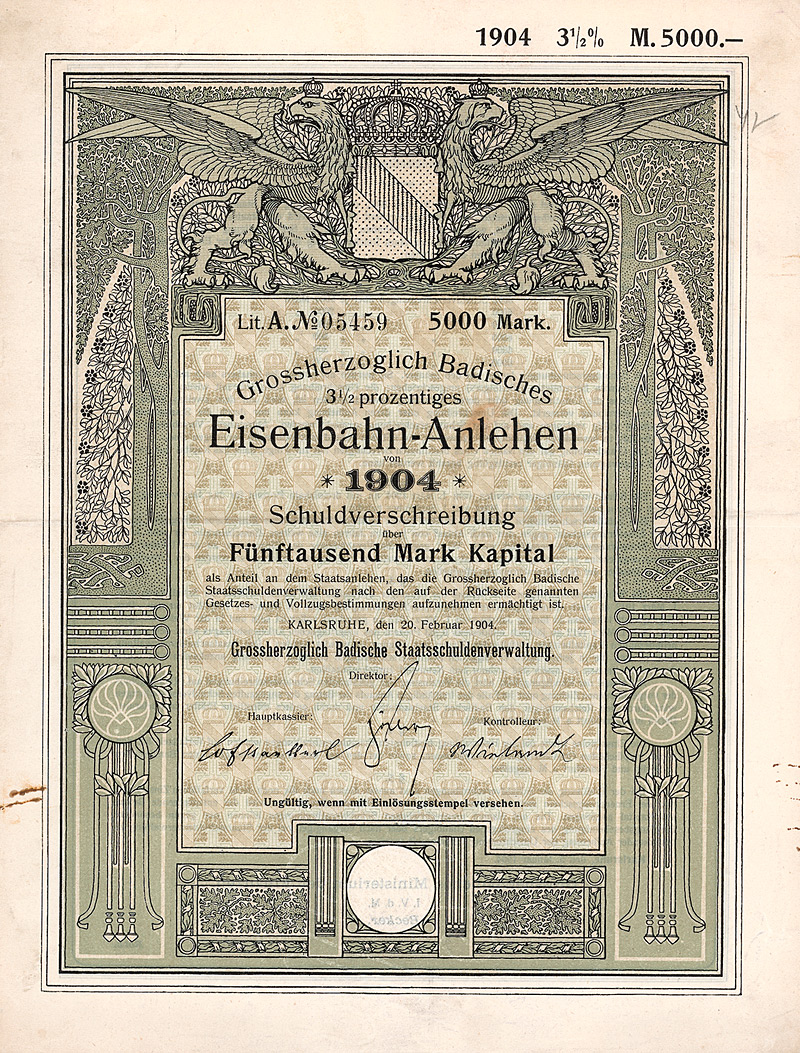 1904 3½% M. 5000.—
Lit. A. № 05459 5000 Mark.
Grossherzoglich Badisches
3½ prozentiges
Eisenbahn-Anlehen
von
* 1904 *
Schuldverschreibung
über
Fünftausend Mark Kapital
als Anteil an dem Staatsanlehen, das die Grossherzoglich Badische
Staatsschuldenverwaltung nach den auf der Rückseite genannten
Gesetzes- und Vollzugsbestimmungen aufzunehmen ermächtigt ist.
KARLSRUHE, den 20. Februar 1904.
Grossherzoglich Badische Staatsschuldenverwaltung.
Direktor:
Hauptkassier:
Kontrolleur:
Ungültig, wenn mit Einlösungsstempel versehen.
Ministerium
I. V. d. M.
Becker.